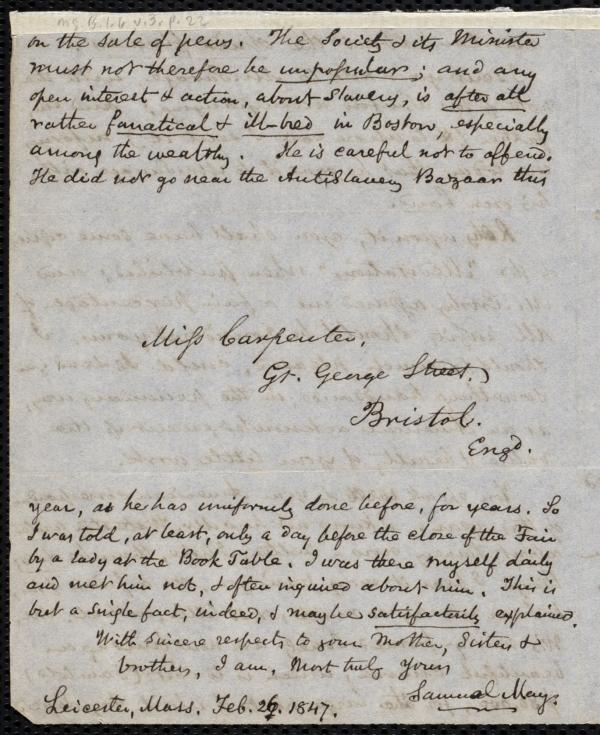 Ms. B.1.6 v.3, p. 22
on the sale of pews. The Society & its Minister
must not therefore be unpopular; and any
open interest & action, about Slavery, is after all
rather fanatical & ill-bred in Boston, especially
among the wealthy. He is careful not to offend.
He did not go near the AntiSlavery Bazaar this
Miss Carpenter,
Gt. George Street,
Bristol.
Engd.
year, as he has uniformly done before, for years. So
I was told, at least, only a day before the close of the Fair
by a lady at the Book Table. I was there myself daily
and met him not, & often inquired about him. This is
but a single fact, indeed, & may be satisfactorily explained.
With sincere respects to your Mother, Sister &
brothers, I am, Most truly yours
Samuel May.
Leicester, Mass. Feb. 1847.